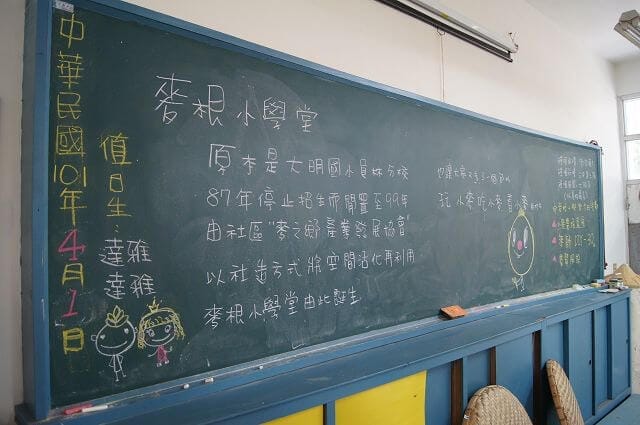 中華民國101年4月1日
值日生：
達雅
達雅
麥根小學堂
原本是大明國小員林分校
87年停止招生而閒置至99年
由社區"麥之鄉產業發展協會"
以社造方式將空間活化再利用
麥根小學堂由此誕生
也讓大家又多一個
玩小麥吃小麥看小麥